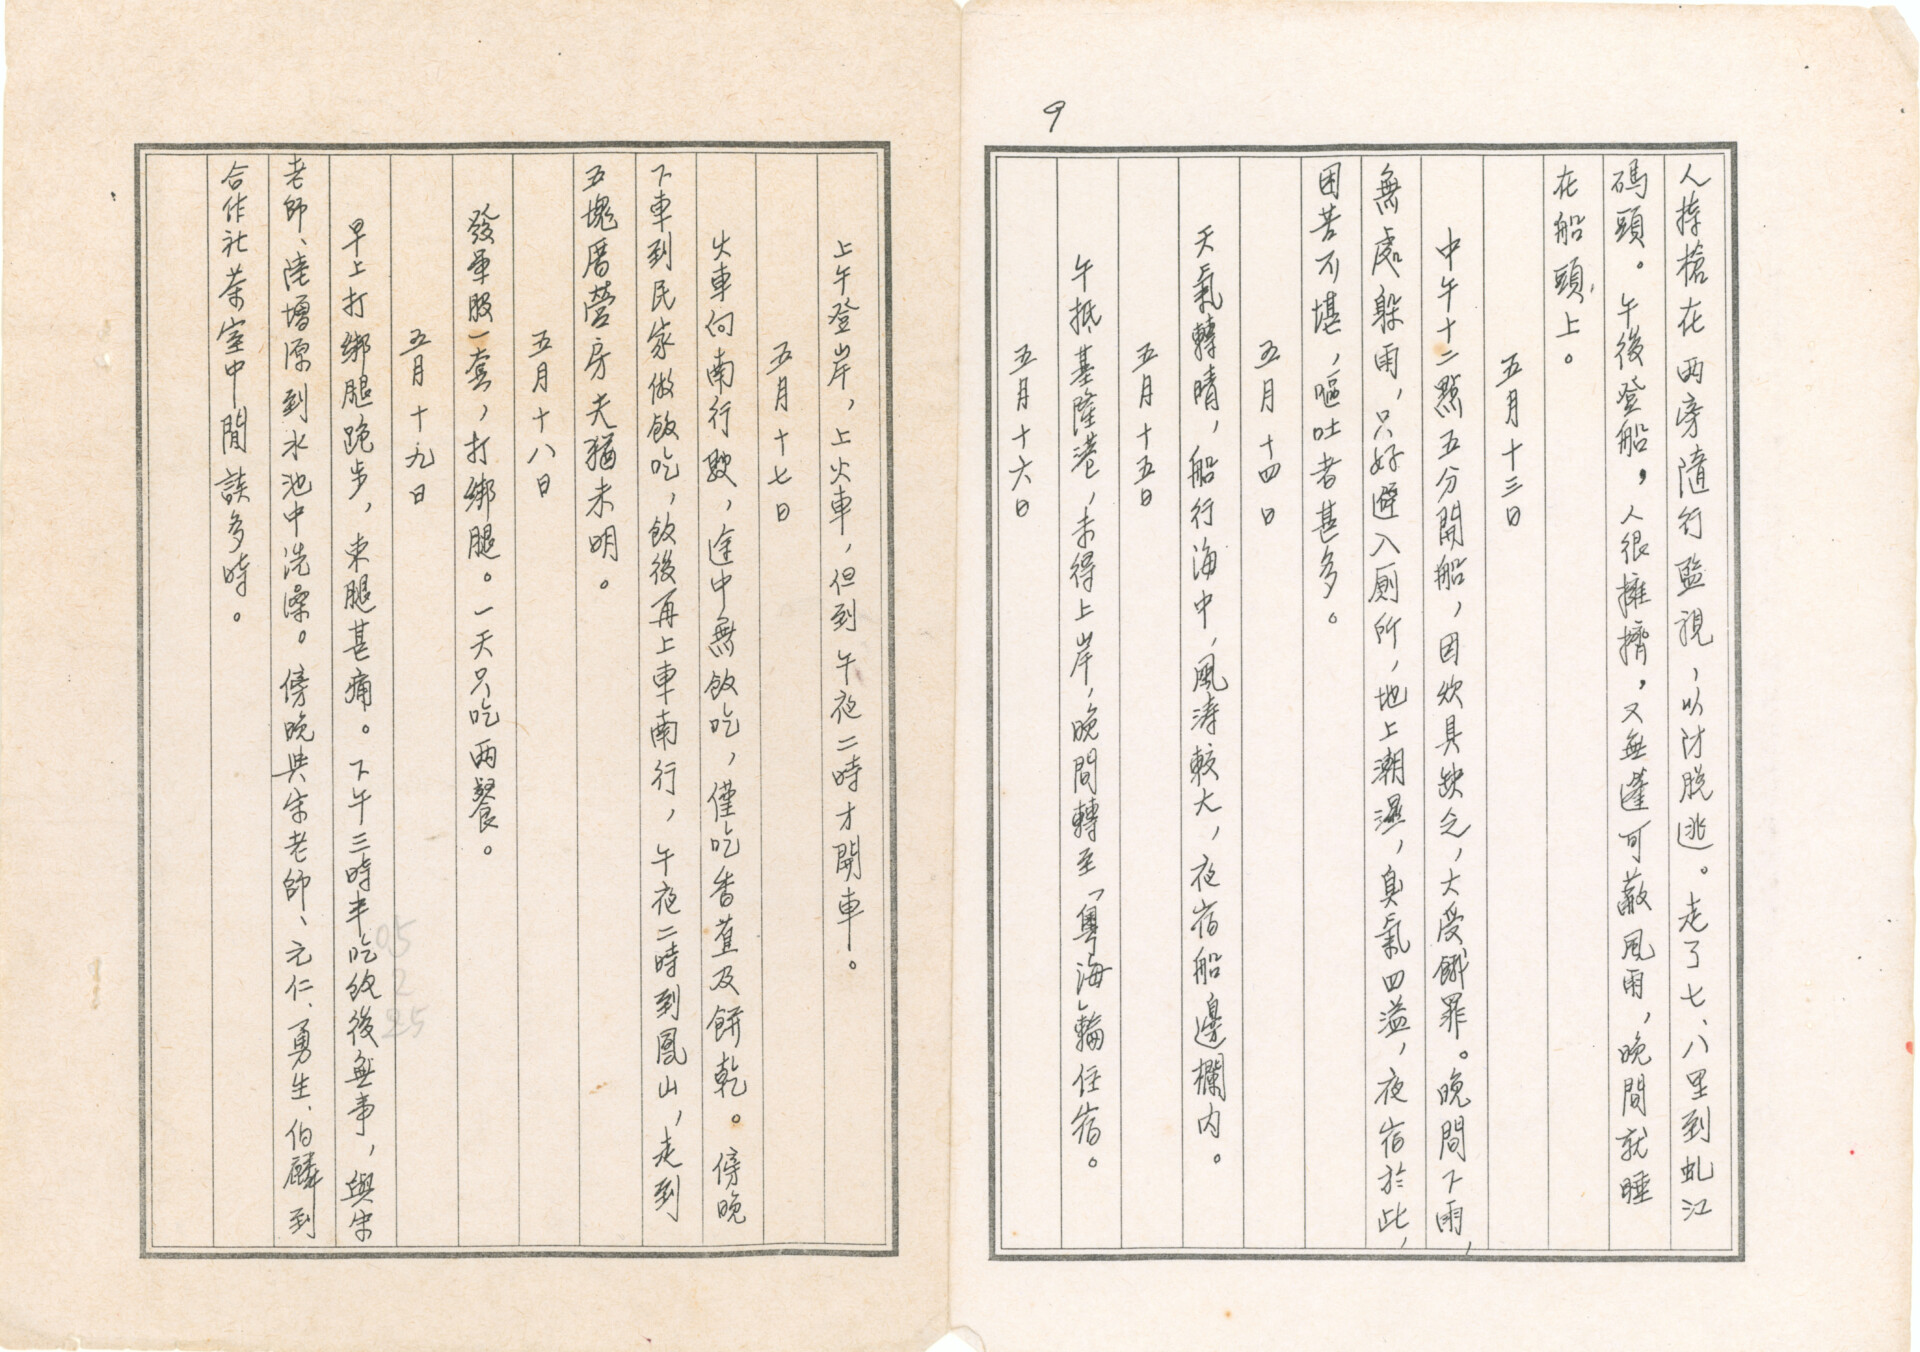 9
人持槍在兩旁隨行監視，以防脫逃。走了七、八里到虬江
碼頭。午後登船，人很擁擠，又無蓬可蔽風雨，晚間就睡
在船頭上。
五月十三日
中午十二點五分開船，因炊具缺乏，大受餓罪。晚間下雨，
無處躲雨，只好避入厠所，地上潮濕，臭氣四溢，夜宿於此，
困苦不堪，嘔吐者甚多。
五月十四日
天氣轉晴，船行海中，風濤較大，夜宿船邊欄內。
五月十五日
午抵基隆港，未得上岸，晚間轉至「粵海」輪住宿。
五月十六日
上午登岸，上火車，但到午夜二時才開車。
五月十七日
火車向南行駛，途中無飯吃，僅吃香蕉及餅乾。傍晚
下車到民家做飯吃，飯後再上車南行，午夜二時到鳳山，走到
五塊厝營房天猶未明。
五月十八日
發軍服一套，打綁腿。一天只吃兩餐。
五月十九日
早上打綁腿跑步，束腿甚痛。下午三時半吃飯後無事，與宋
老師、陸增源到水池中洗澡。傍晚與宋老師、元仁、勇生、伯麟到
合作社茶室中閒談多時。
05
2
25